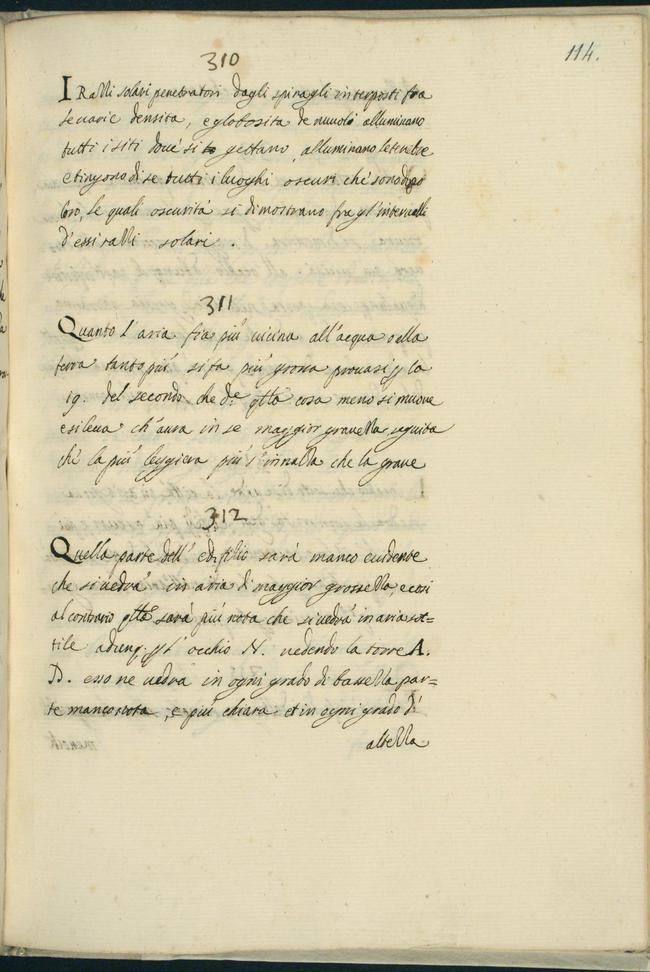 114.
310
I Razzi solari penetratori dagli spiragli interposti fra
le varie densita, e globosita de nuuoli alluminano
tutti i siti doue si gettano, alluminano le tenebre
e tingono di se tutti i luoghi oscuri che sono dopo
loro, le quali oscurità si dimostrano fra gl'interualli
d'essi razzi solari.
311
Quanto l'aria fia più uicina all'acqua o alla
terra tanto più si fa più grossa prouasi p la
19. del secondo che de qlla cosa meno si muoue
e si leua ch'aura in se maggior grauezza seguita
che la più leggiera più s'innalza che la graue
312
Quella parte dell'edifitio sarà manco euidente
che si uedrà in aria di maggior grossezza e così
al contrario qlla sarà più nota che si uedrà in aria sot=
tile adunq. l'occhio N. uedendo la torre A.
D. esso ne uedrà in ogni grado di bassezza par=
te manco nota, e più chiara et in ogni grado di
altezza